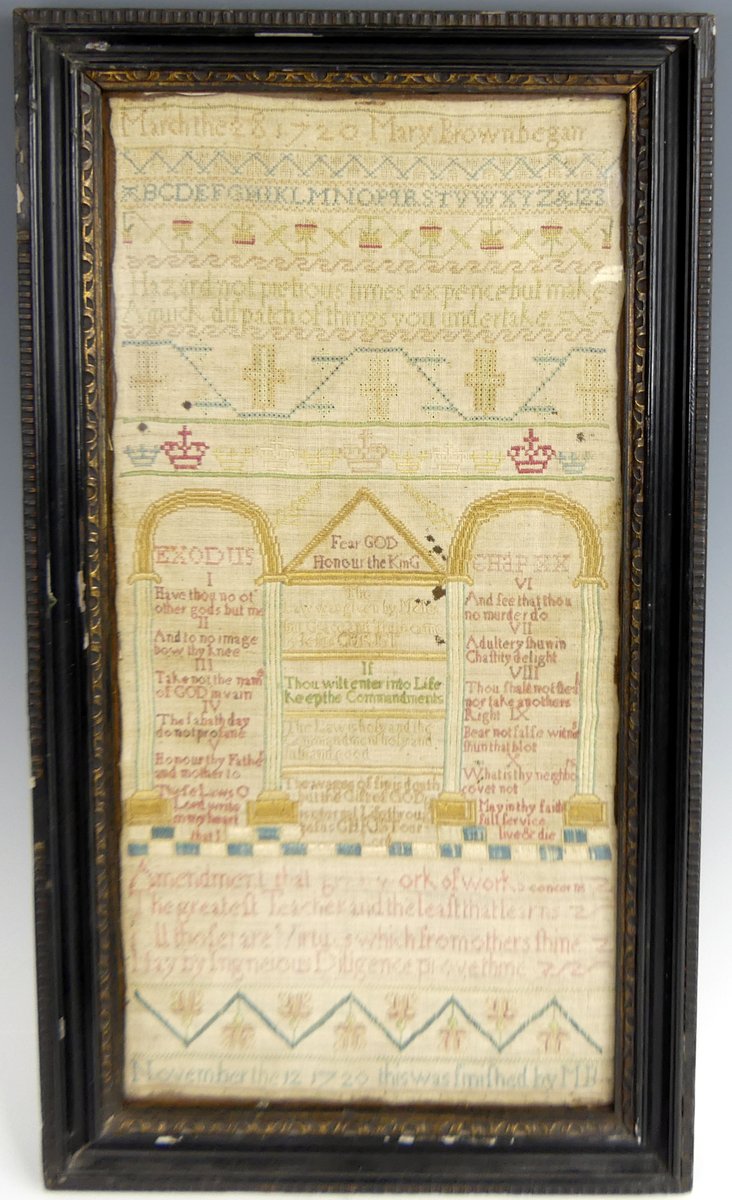 March the 28 1720 Mary Brown began
ABCDEFGHIKLMNOPQRSTVWXYZ& 123
Hazard not pretious times expence but make
A quick dispatch of things you undertake
EXODUS
I
Have thou no of
other gods but me
II
And to no image
bow thy knee
III
Take not the name
of GOD in vain
IV
The sabath day
do not profane
V
Honour thy Father
and mother to
These Laws O
Lord write
in my heart
that I
Fear GOD
Honour the KinG
The
Law was given by
but
CHRIST
If
Thou wilt enter into Life
Keep the Commandments
The Law is holy and the
Commandment holy and
and good
The wages of sin is death
but the Gift of GOD
is eternal Life
CHRIST our
CHaP XX
VI
And see that thou
no murder do
VII
Adultery shun in
Chastity delight
VIII
Thou shalt not steal
nor take anothers
Right IX
Bear not false witnes
shun that blot
X
What is thy neighbors
covet not
May in thy faith
full service
live & die
Amendment that great work of works concerns
The greatest Teacher and the least that learns
All those rare Virtues which from others shine
May by Diligence prove thine
November the 12 1720 this was finished by M B